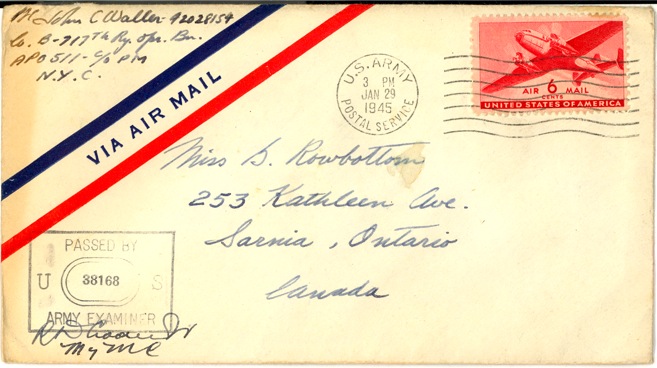 John C Waller 42028154
Co. B-717th Ry. Opr. Bn.
APO 511 - c/o PM
N.Y.C.
VIA AIR MAIL
U.S. ARMY
3 PM
JAN 29
1945
POSTAL SERVICE
AIR 6 MAIL
CENTS
UNITED STATES OF AMERICA
Miss G. Rowbottom
253 Kathleen Ave.
Sarnia, Ontario
Canada
PASSED BY
U 38168 S
ARMY EXAMINER